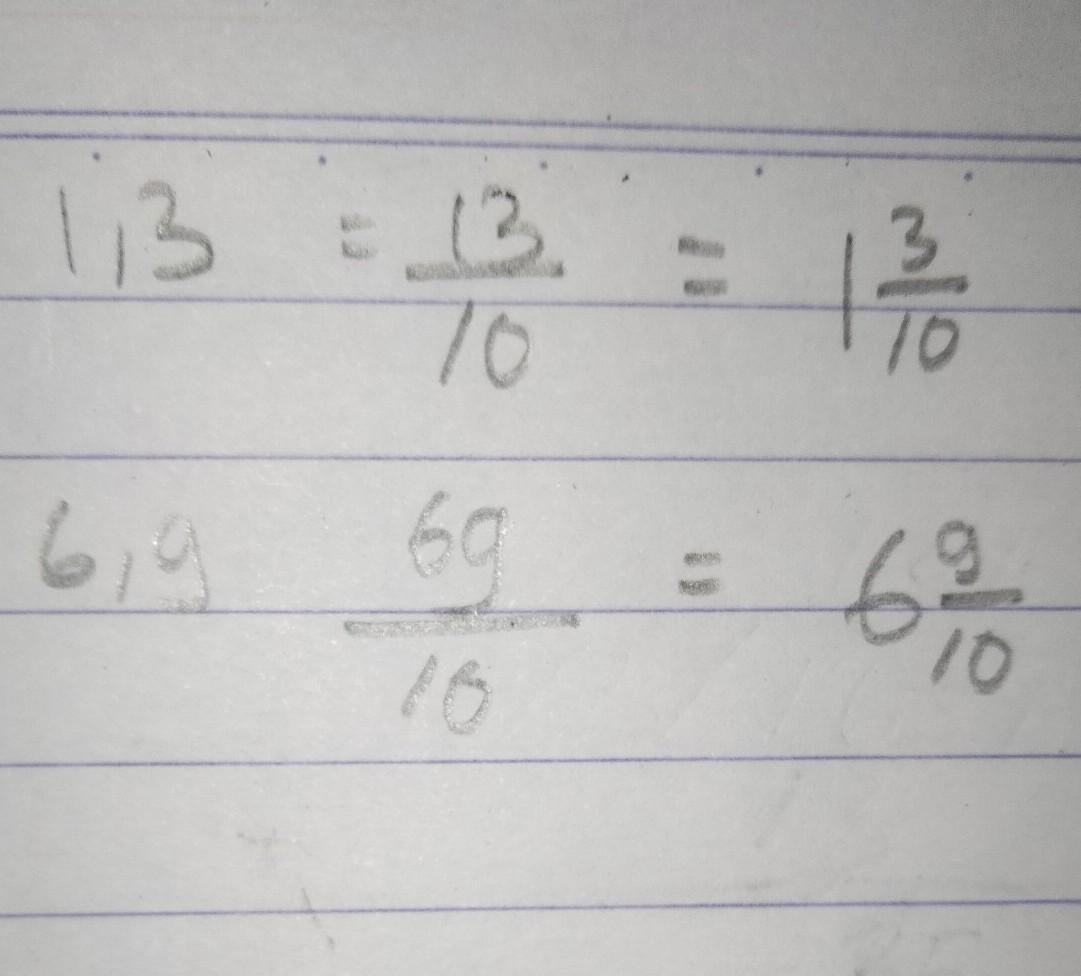 1,3 = 13/10 = 1 3/10
6,9 69/10 = 6 9/10